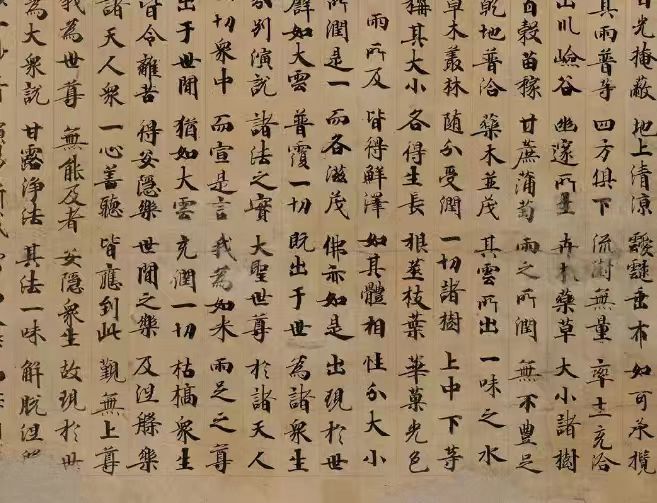 日光掩蔽 地上清涼 靉靆垂布 如可承攬
其雨普等 四方俱下 流澍無量 率土充洽
山川嶮谷 幽邃所生 卉木藥草 大小諸樹
百穀苗稼 甘蔗蒲萄 雨之所潤 無不豊足
乾地普洽 藥木並茂 其雲所出 一味之水
草木叢林 随分受潤 一切諸樹 上中下等
稱其大小 各得生長 根莖枝葉 華菓光色
雨所及 皆得鮮澤 如其體相 性分大小
所潤是一 而各滋茂 佛亦如是 出現於世
譬如大雲 普覆一切 既出于世 為諸衆生
分別演說 諸法之實 大聖世尊 於諸天人
一切衆中 而宣是言 我為如来 兩足之尊
出于世間 猶如大雲 充潤一切 枯槁衆生
皆令離苦 得安隱樂 世間之樂 及涅槃樂
諸天人衆 一心善聽 皆應到此 覲無上尊
我為世尊 無能及者 安隱衆生 故現於世
為大衆說 甘露淨法 其法一味 解脫涅槃